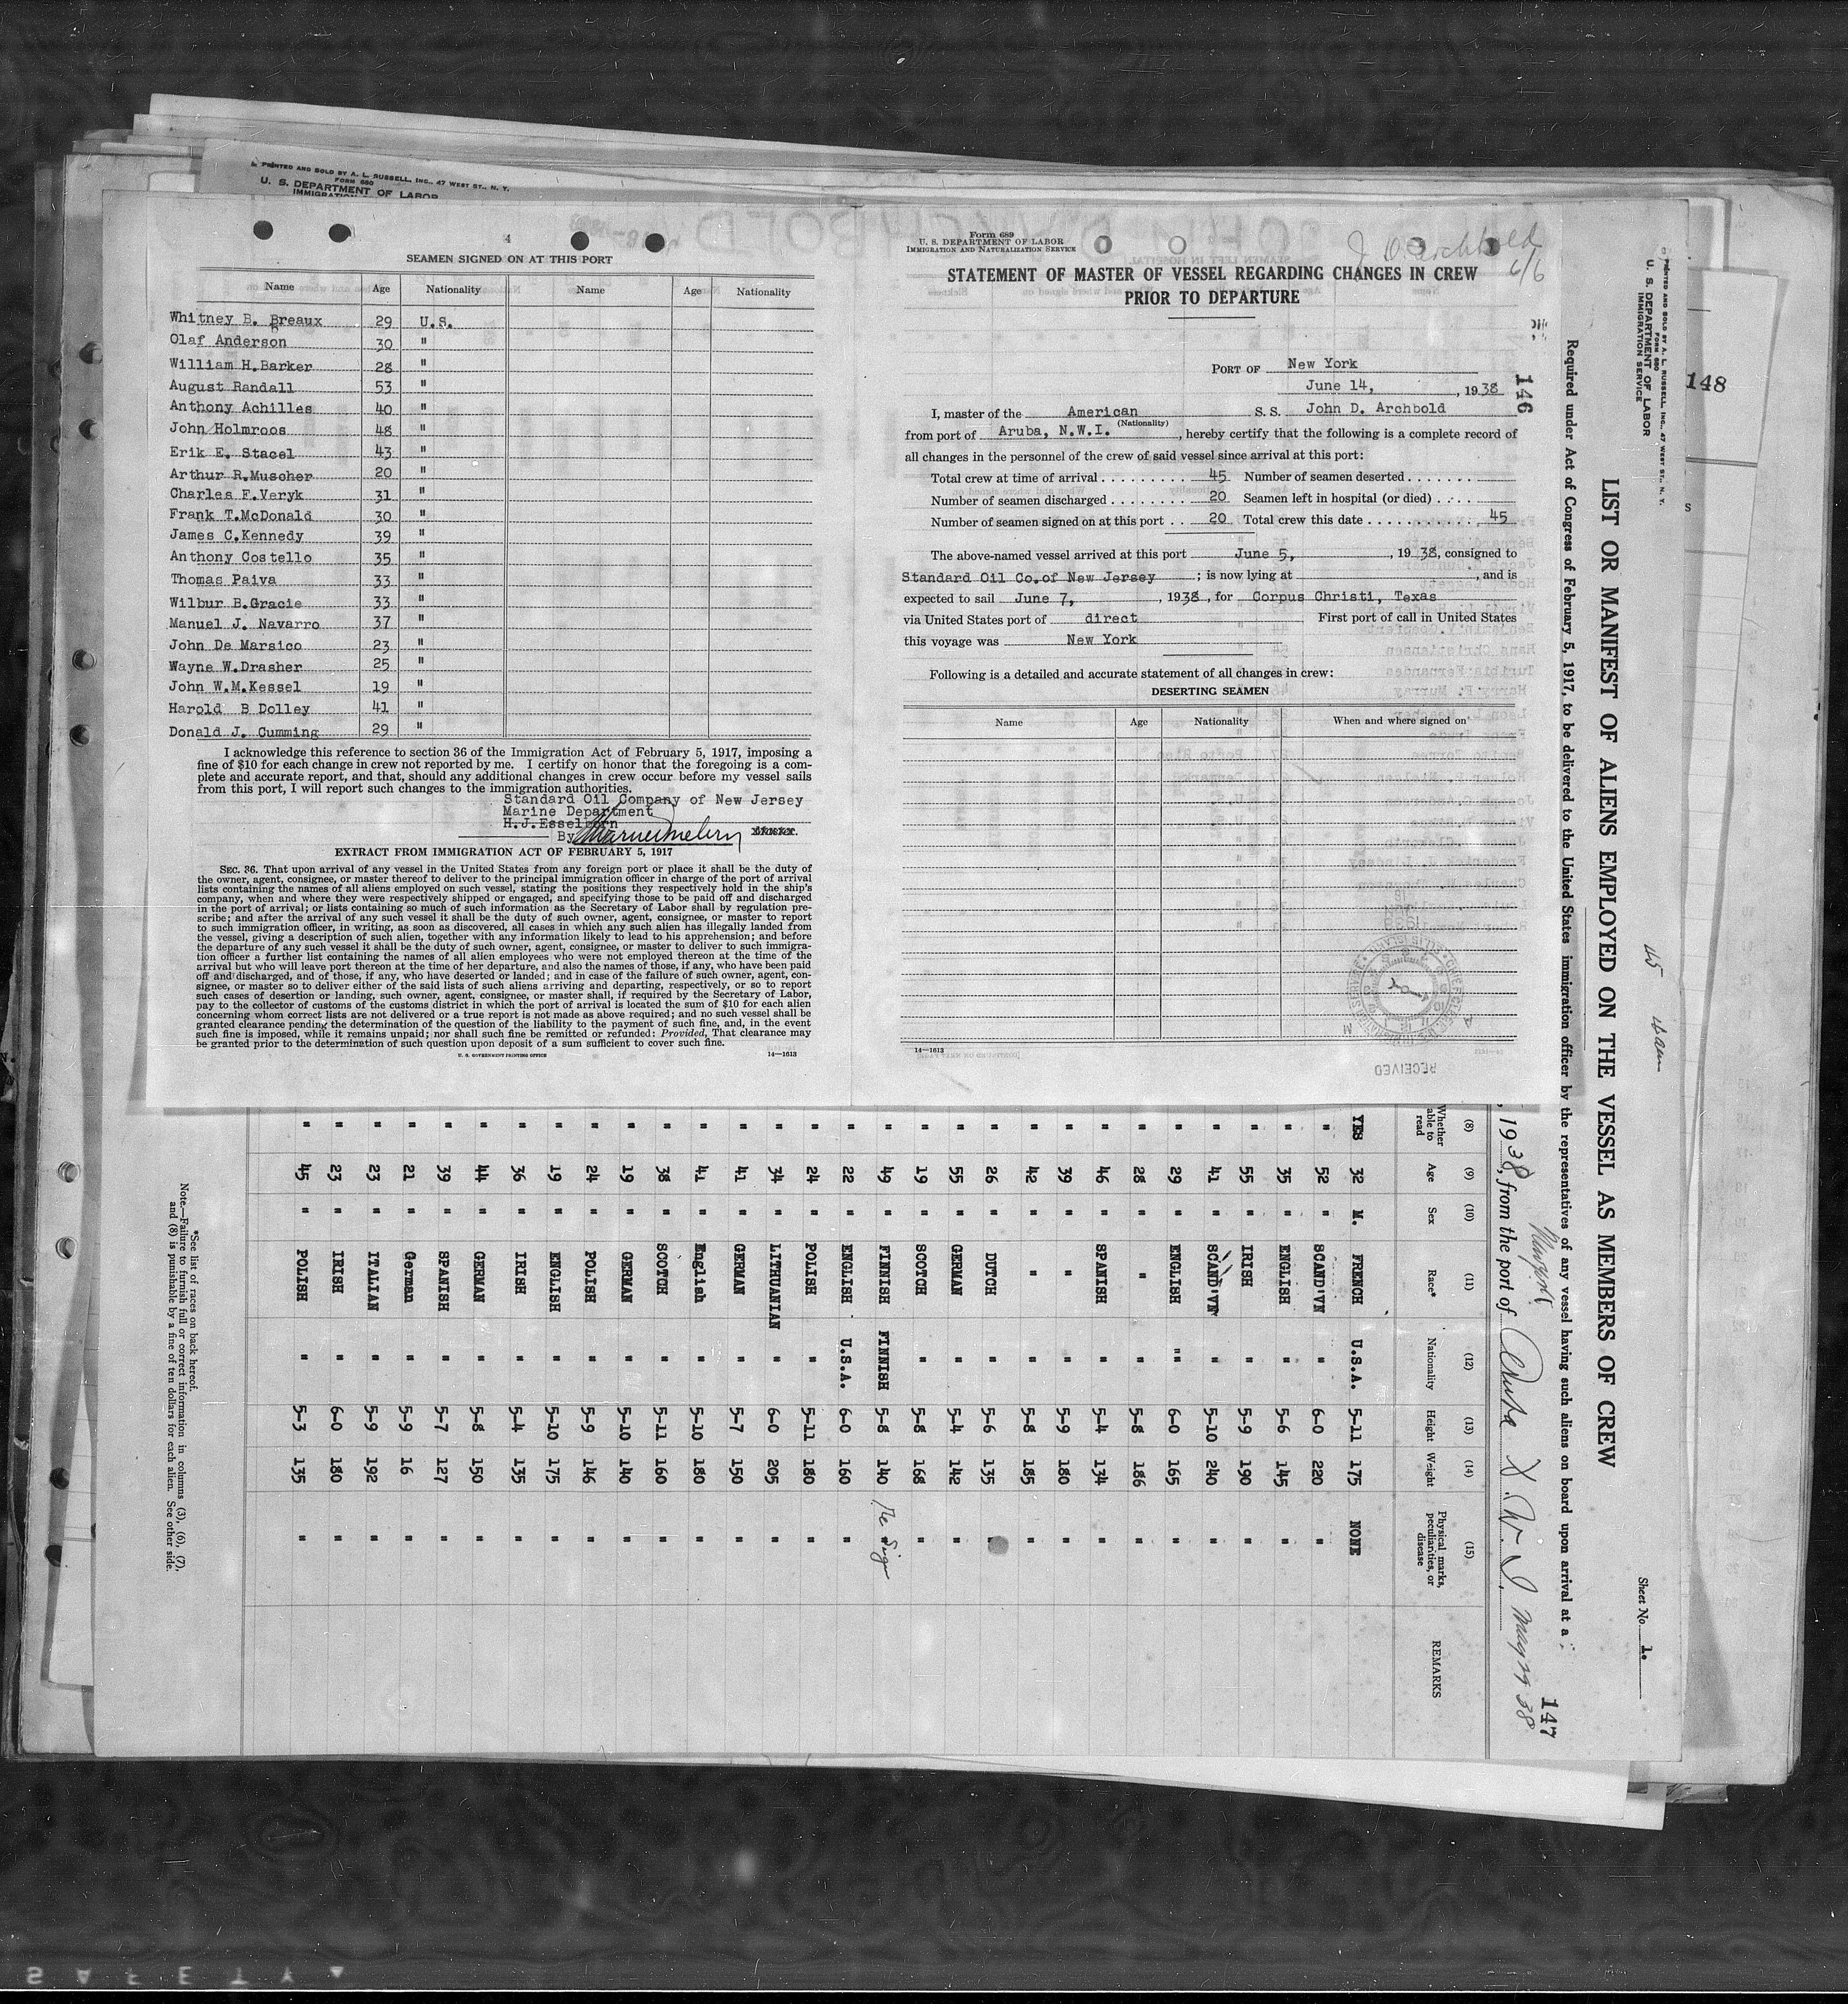 PRINTED AND SOLD BY A. L. RUSSELL, INC., 47 WEST ST., N. Y.
FORM 680
U. S. DEPARTMENT OF LABOR
IMMIGRATION
4
SEAMEN SIGNED ON AT THIS PORT
Name Age Nationality Name Age Nationality
Whitney B. Breaux 29 U.S.
Olaf Anderson 30 "
William H.Barker 28 "
August Randall 53 "
Anthony Achilles 40 "
John Holmroos 48 "
Erik E. Stacel 43 "
Arthur R.Muscher 20 "
Charles F.Veryk 31 "
Frank T.McDonald 30 "
James C.Kennedy 39 "
Anthony Costello 35 "
Thomas Paiva 33 "
Wilbur B.Gracie 33 "
Manuel J. Navarro 37 "
John De Marsico 23 "
Wayne W.Drasher 25 "
John W.M.Kessel 19 "
Harold B Dolley 41 "
Donald J. Cumming 29 "
I acknowledge this reference to section 36 of the Immigration Act of February 5, 1917, imposing a
fine of $10 for each change in crew not reported by me. I certify on honor that the foregoing is a com-
plete and accurate report, and that, should any additional changes in crew occur before my vessel sails
from this port, I will report such changes to the immigration authorities.
Standard Oil Company of New Jersey
Marine Department
H.J.Esselborn
By Master.
EXTRACT FROM IMMIGRATION ACT OF FEBRUARY 5, 1917
SEC. 36. That upon arrival of any vessel in the United States from any foreign port or place it shall be the duty of
the owner, agent, consignee, or master thereof to deliver to the principal immigration officer in charge of the port of arrival
lists containing the names of all aliens employed on such vessel, stating the positions they respectively hold in the ship's
company, when and where they were respectively shipped or engaged, and specifying those to be paid off and discharged
in the port of arrival; or lists containing so much of such information as the Secretary of Labor shall by regulation pre-
scribe; and after the arrival of any such vessel it shall be the duty of such owner, agent, consignee, or master to report
to such immigration officer, in writing, as soon as discovered, all cases in which any such alien has illegally landed from
the vessel, giving a description of such alien, together with any information likely to lead to his apprehension; and before
the departure of any such vessel it shall be the duty of such owner, agent, consignee, or master to deliver to such immigra-
tion officer a further list containing the names of all alien employees who were not employed thereon at the time of the
arrival but who will leave port thereon at the time of her departure, and also the names of those, if any, who have been paid
off and discharged, and of those, if any, who have deserted or landed; and in case of the failure of such owner, agent, con-
signee, or master so to deliver either of the said lists of such aliens arriving and departing, respectively, or so to report
such cases of desertion or landing, such owner, agent, consignee, or master shall, if required by the Secretary of Labor,
pay to the collector of customs of the customs district in which the port of arrival is located the sum of $10 for each alien
concerning whom correct lists are not delivered or a true report is not made as above required; and no such vessel shall be
granted clearance pending the determination of the question of the liability to the payment of such fine, and, in the event
such fine is imposed, while it remains unpaid; nor shall such fine be remitted or refunded: Provided, That clearance may
be granted prior to the determination of such question upon deposit of a sum sufficient to cover such fine.
U. S. GOVERNMENT PRINTING OFFICE 14—1613
Form 689
U. S. DEPARTMENT OF LABOR
IMMIGRATION AND NATURALIZATION SERVICE
J D Archbold
6/6
STATEMENT OF MASTER OF VESSEL REGARDING CHANGES IN CREW
PRIOR TO DEPARTURE
146
PORT OF New York
June 14, , 1938
I, master of the American S. S. John D. Archbold
(Nationality)
from port of Aruba, N.W.I. , hereby certify that the following is a complete record of
all changes in the personnel of the crew of said vessel since arrival at this port:
Total crew at time of arrival 45 Number of seamen deserted
Number of seamen discharged 20 Seamen left in hospital (or died)
Number of seamen signed on at this port 20 Total crew this date 45
The above-named vessel arrived at this port June 5, , 1938, consigned to
Standard Oil Co.of New Jersey ; is now lying at , and is
expected to sail June 7, , 1938, for Corpus Christi, Texas
via United States port of direct First port of call in United States
this voyage was New York
Following is a detailed and accurate statement of all changes in crew:
DESERTING SEAMEN
Name Age Nationality When and where signed on
14—1613
RECEIVED
PRINTED AND SOLD BY A. L. RUSSELL, INC., 47 WEST ST., N. Y.
FORM 680
U. S. DEPARTMENT OF LABOR
IMMIGRATION SERVICE
148
Sheet No. 1.
LIST OR MANIFEST OF ALIENS EMPLOYED ON THE VESSEL AS MEMBERS OF CREW
Required under Act of Congress of February 5, 1917, to be delivered to the United States immigration officer by the representatives of any vessel having such aliens on board upon arrival at a
147
, 1938, from the port of Aruba N. W. I. May 29 38
(8) (9) (10) (11) (12) (13) (14) (15)
Whether able to read Age Sex Race* Nationality Height Weight Physical marks, peculiarities, or disease REMARKS
YES 32 M. FRENCH U.S.A. 5-11 175 NONE
" 52 " SCAND'VN " 6-0 220 "
" 35 " ENGLISH " 5-6 145 "
" 55 " IRISH " 5-9 190 "
" 41 " SCAND'VN " 5-10 240 "
" 29 " ENGLISH "" 6-0 165 "
" 28 " " " 5-8 186 "
" 46 " SPANISH " 5-4 134 "
" 39 " " " 5-9 180 "
" 42 " " " 5-8 185 "
" 26 " DUTCH " 5-6 135 "
" 55 " GERMAN " 5-4 142 "
" 19 " SCOTCH " 5-8 168 "
" 49 " FINNISH FINNISH 5-8 140
" 22 " ENGLISH U.S.A. 6-0 160 "
" 24 " POLISH " 5-11 180 "
" 34 " LITHUANIAN " 6-0 205 "
" 41 " GERMAN " 5-7 150 "
" 41 " English " 5-10 180 "
" 38 " SCOTCH " 5-11 160 "
" 19 " GERMAN " 5-10 140 "
" 24 " POLISH " 5-9 146 "
" 19 " ENGLISH " 5-10 175 "
" 36 " IRISH " 5-4 135 "
" 44 " GERMAN " 5-8 150 "
" 39 " SPANISH " 5-7 127 "
" 21 " German " 5-9 16 "
" 23 " ITALIAN " 5-9 192 "
" 23 " IRISH " 6-0 180 "
" 45 " POLISH " 5-3 135 "
*See list of races on back hereof.
Note.—Failure to furnish full or correct information in columns (3), (6), (7),
and (8) is punishable by a fine of ten dollars for each alien. See other side.
SAFETY